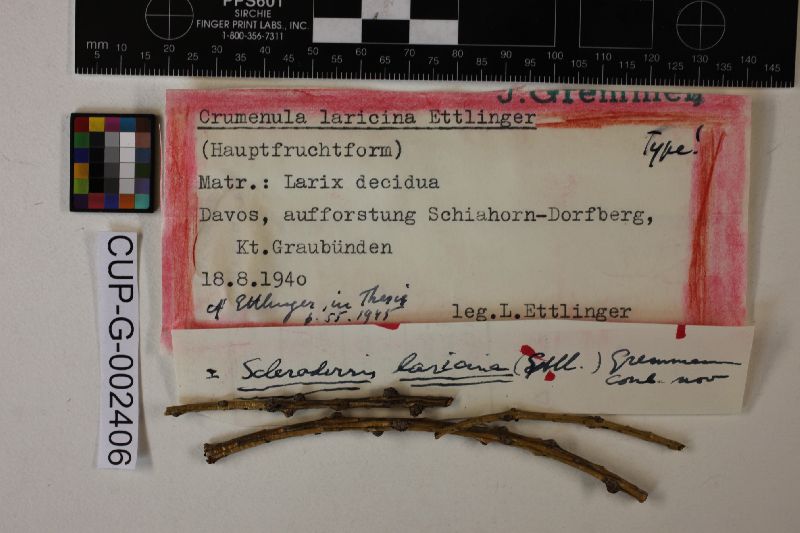 PPS601
SIRCHIE
FINGER PRINT LABS., INC.
1-800-356-7311
50 60 70 80 90 100 110 120 130
mm
5 10 15 20 25 30 35 40 45 50 55 60 65 70 75 80 85 90 95 100 105 110 115 120 125 130 135 140 145
J. Gremmen
Crumenula laricina Ettlinger
(Hauptfruchtform)
Type!
Matr.: Larix decidua
Davos, aufforstung Schiahorn-Dorfberg,
Kt.Graubünden
18.8.1940
cf Ettlinger, in Thesis
p. 55. 1945
leg.L.Ettlinger
= Scleroderris laricina (Ettl.) Gremmen
comb. nov
CUP-G-002406